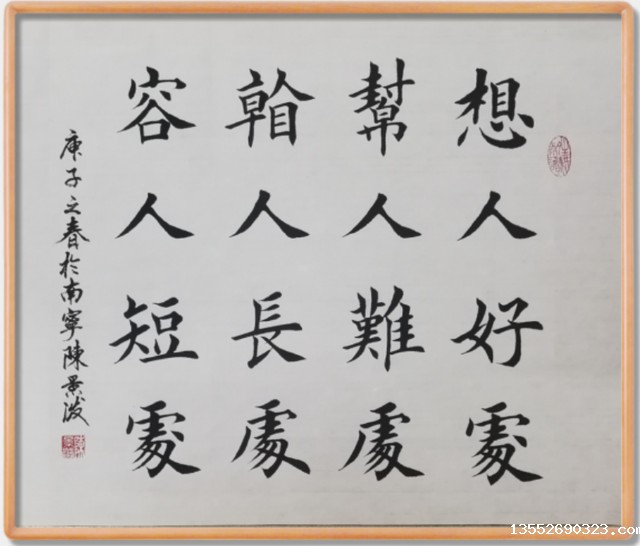 想人好處
幫人難處
人長處
容人短處
庚子之春於南寧陳景
13552690323.com